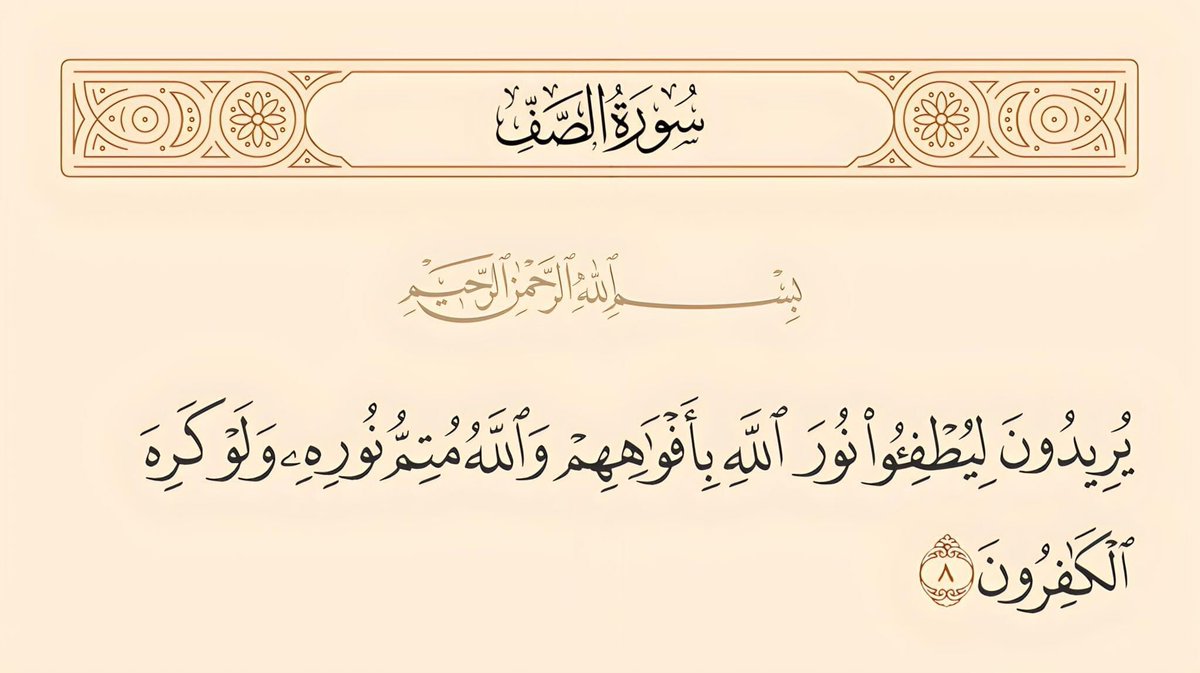 سُورَةُ الصَّفِّ
بِسْمِ ٱللَّهِ ٱلرَّحْمَٰنِ ٱلرَّحِيمِ
يُرِيدُونَ لِيُطْفِـُٔوا۟ نُورَ ٱللَّهِ بِأَفْوَٰهِهِمْ وَٱللَّهُ مُتِمُّ نُورِهِۦ وَلَوْ كَرِهَ
ٱلْكَٰفِرُونَ ٨